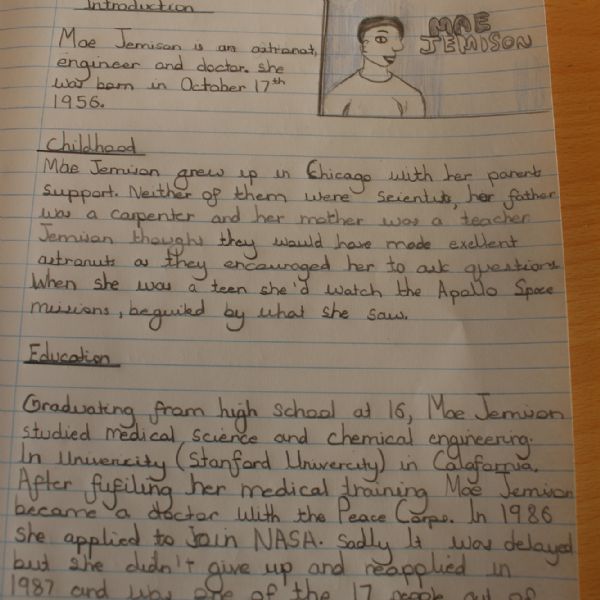 Introduction
MAE
JEMISON
Mae Jemison is an astronat,
engineer and doctor. she
was born in October 17th
1956.
Childhood
Mae Jemison grew up in Chicago with her parent
support. Neither of them were scientists, her father
was a carpenter and her mother was a teacher
Jemison thought they would have made exellent
astronuts as they encouraged her to ask questions
When she was a teen she'd watch the Apollo Space
missions, beguiled by what she saw.
Education
Graduating from high school at 16, Mae Jemison
studied medical science and chemical engineering.
In Univercity (Stanford Univercity) in Calafornia.
After fufiling her medical training Mae Jemison
became a doctor with the Peace Corps. In 1986
she applied to Join NASA. Sadly It was delayed
but she didn't give up and reapplied in
1987 and was one of the 17 people out of